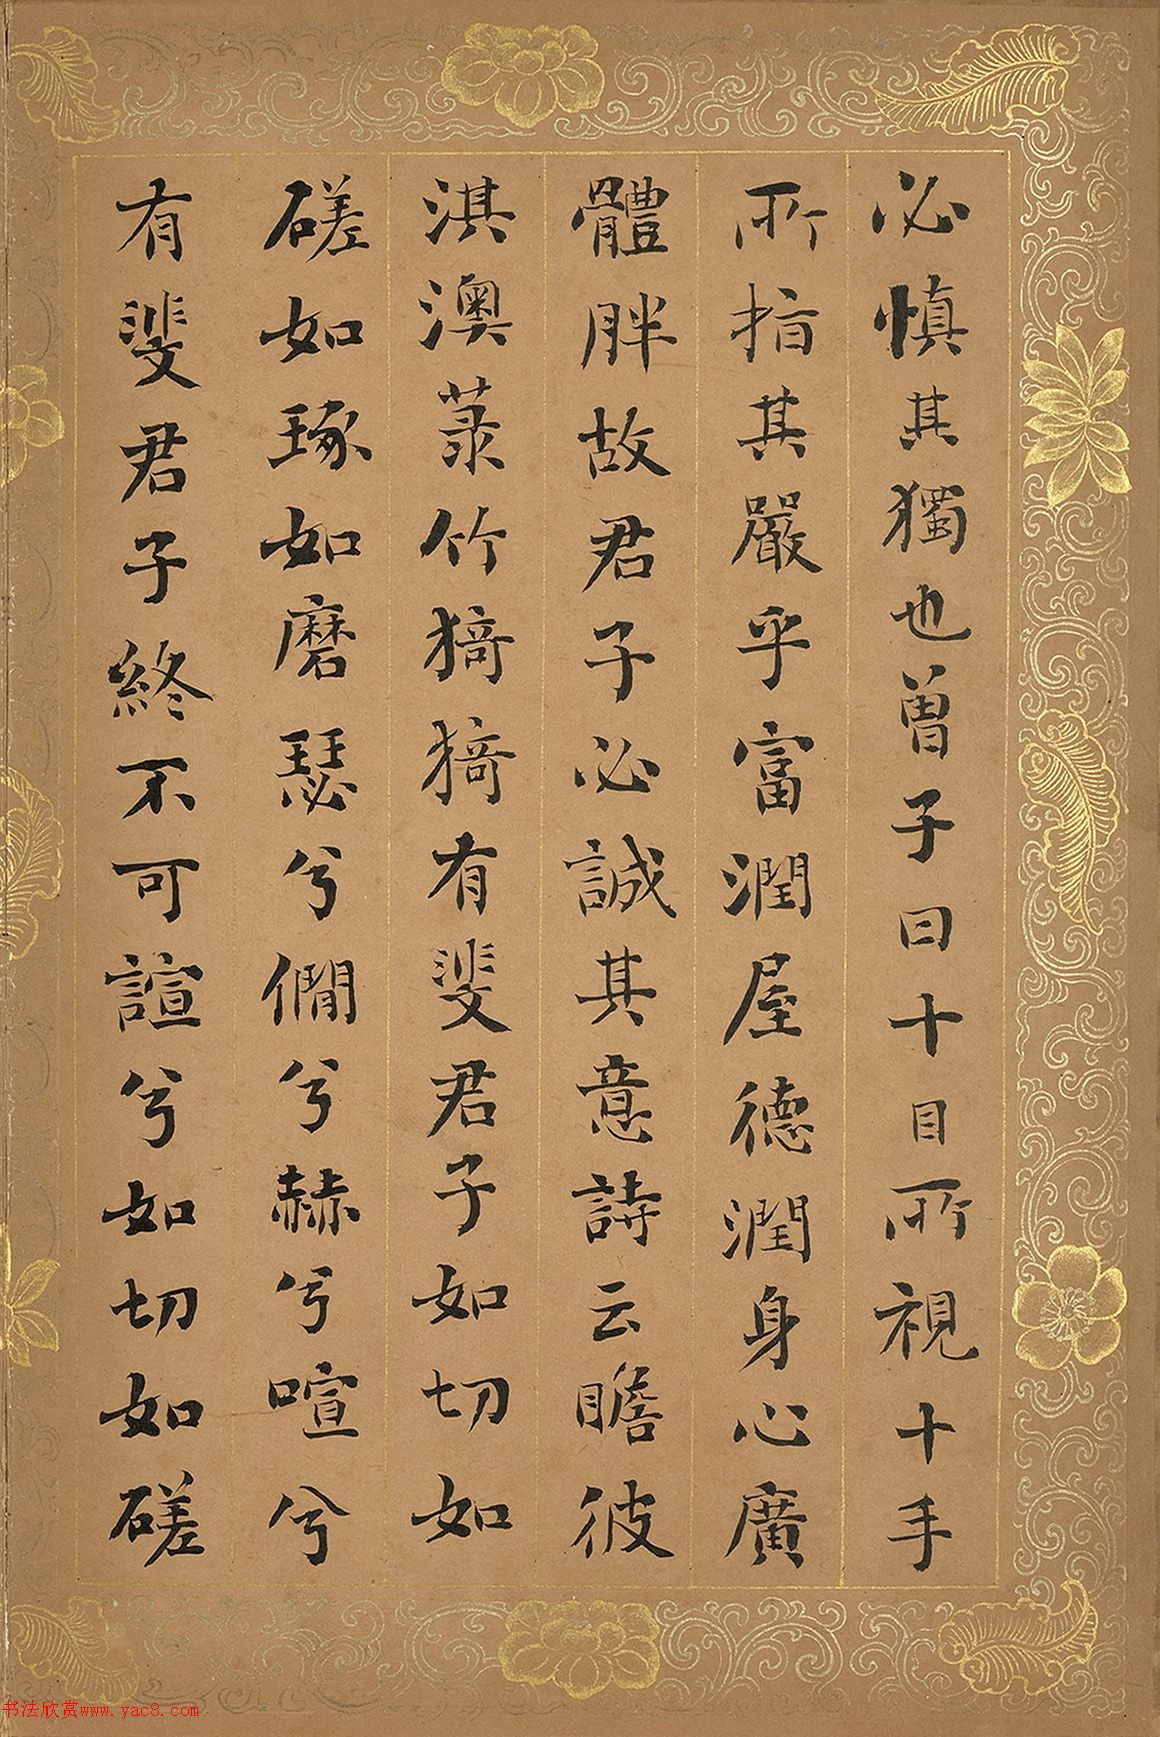 必慎其獨也曾子曰十目所視十手
所指其嚴乎富潤屋德潤身心廣
體胖故君子必誠其意詩云瞻彼
淇澳菉竹猗猗有斐君子如切如
磋如琢如磨瑟兮僩兮赫兮喧兮
有斐君子終不可諠兮如切如磋
书法欣赏www.yac8.com